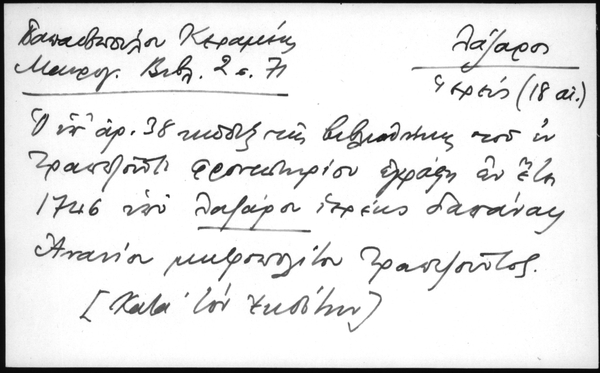 Παπαδοπούλου Κεραμέως
Μαυρογ. Βιβλ. 2 σ. 71
Λάζαρος
ἱερεύς (18 αἰ.)
Ὁ ὑπ' ἀρ. 38 κῶδιξ τῆς βιβλιοθήκης τοῦ ἐν
Τραπεζοῦντι φροντιστηρίου ἐγράφη ἐν ἔτει
1746 ὑπὸ Λαζάρου ἱερέως δαπάναις
Ἀνανίου μητροπολίτου Τραπεζοῦντος.
[Κατὰ τὸν ἐκδότην]